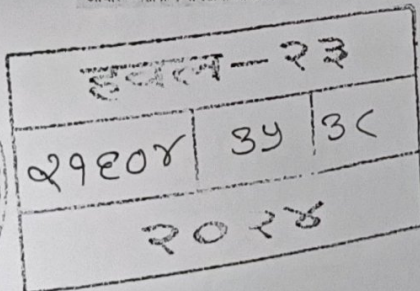 हवल - २३
२१६०४ | ३५ | ३८
२०२४